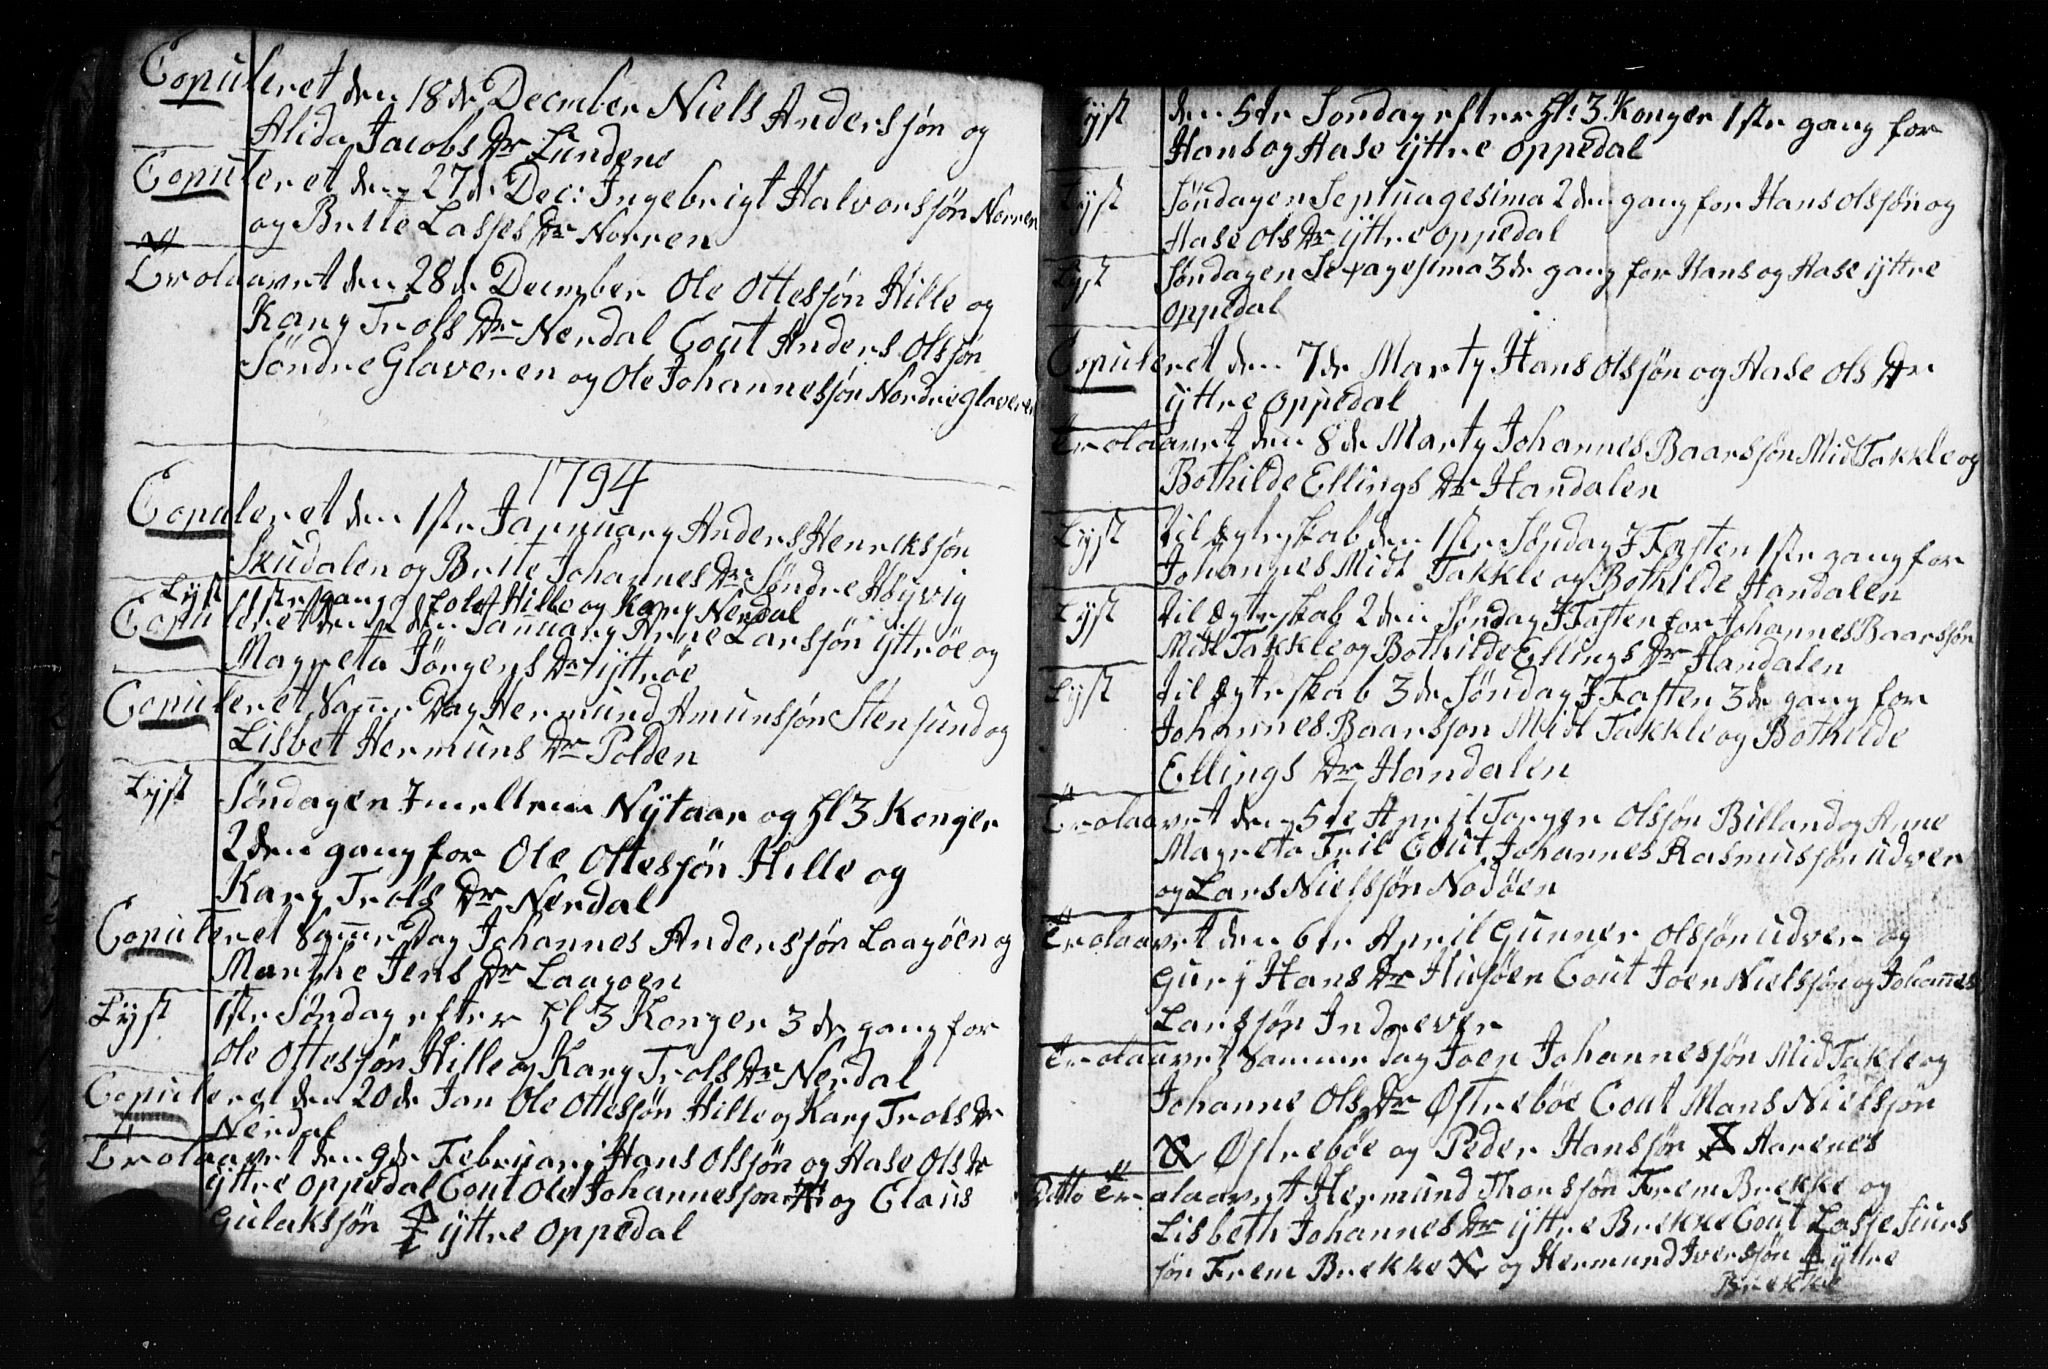 Copuleret den 18de December Niels Andersjøn og
Alida Jacobs Dr Lundene
Copuleret den 27de Dec: Ingebrigt Halvorsjøn Norren
og Brite Lasses Dr Norren
Trolaavet den 28de December Ole Ottesjøn Hille og
Kary Trols Dr Nerdal Cout Anders Olsjøn
Søndre Glaveren og Ole Johannesjøn Nordre Glaveren
1794
Copuleret den 1ste Januuary Anders Henriksjøn
Skudalen og Brite Johannes Dr Søndre Høyvig
Lyst 1ste gang f Ole Hille og Kary Nerdal
Copuleret den 2den January Arne Larsjøn yttrøe og
Magreta Jørgens Dr yttrøe
Copuleret Samme Dag Hermund Amunsjøn Stensund og
Lisbet Hermuns Dr Polden
Lyst Søndagen Imellem Nytaar og Hl 3 Konger
2den gang for Ole Ottesjøn Hille og
Kary Trols Dr Nerdal
Copuleret Samme Dag Johannes Andersjøn Laagøen og
Marthe Jens Dr Laagøen
Lyst 1ste Søndag efter Hl 3 Konger 3de gang for
Ole Ottesjøn Hille og Kary Trols Dr Nerdal
Copuleret den 20de Jan Ole Ottesjøn Hille og Kary Trols Dr
Nerdal
Trolaavet den 9de February Hans Olsjøn og Aase Ols Dr
yttre Oppedal Cout Ole Johannesjøn og Claus
Gulaksjøn yttre Oppedal
Lyst den 5te Søndag efter Hl: 3 Konger 1ste gang for
Hans og Aase yttre Oppedal
Lyst Søndagen Septuagesima 2den gang for Hans Olsjøn og
Aase Ols Dr yttre Oppedal
Lyst Søndagen Sexagesima 3de gang for Hans og Aase yttre
Oppedal
Copuleret den 7de Marty Hans Olsjøn og Aase Ols Dr
yttre Oppedal
Trolaavet den 8de Marty Johannes Baarsjøn Midt Takkle og
Bothilde Ellings Dr Handalen
Lyst til Ægteskab den 1ste Søndag I Fasten 1ste gang for
Johannes Midt Takkle og Bothilde Handalen
Lyst til Ægteskab 2den Søndag I Fasten for Johannes Baarsjøn
Midt Takkle og Bothilde Ellings Dr Handalen
Lyst til Ægteskab 3de Søndag I Fasten 3de gang for
Johannes Baarsjon Midt Takkle og Bothilde
Ellings Dr Handalen
Trolaavet den 5te April Torger Olsjøn Billand og Anne
Magreta Fril Cout Johannes Rasmusjøn udver
og Lars Nielsjøn Nodøen
Trolaavet den 6te April Gunner Olsjøn udver og
Gury Hans Dr Husøen Cout Joen Nielsjøn og Johannes
Larsjøn Indrever
Trolaavet Samme dag Joen Johannesjøn Mid Takle og
Johanne Ols Dr Østrebøe Cout Mans Nielsjøn
Østrebøe og Peder Hansjøn Aarenes
Ditto Trolaavet Hermund Thorsjøn Frem Brekke og
Lisbeth Johannes Dr yttre Brekke Cout Lasse Siurs
jøn Frem Brekke og Hermund Iversjøn yttre
Brekke